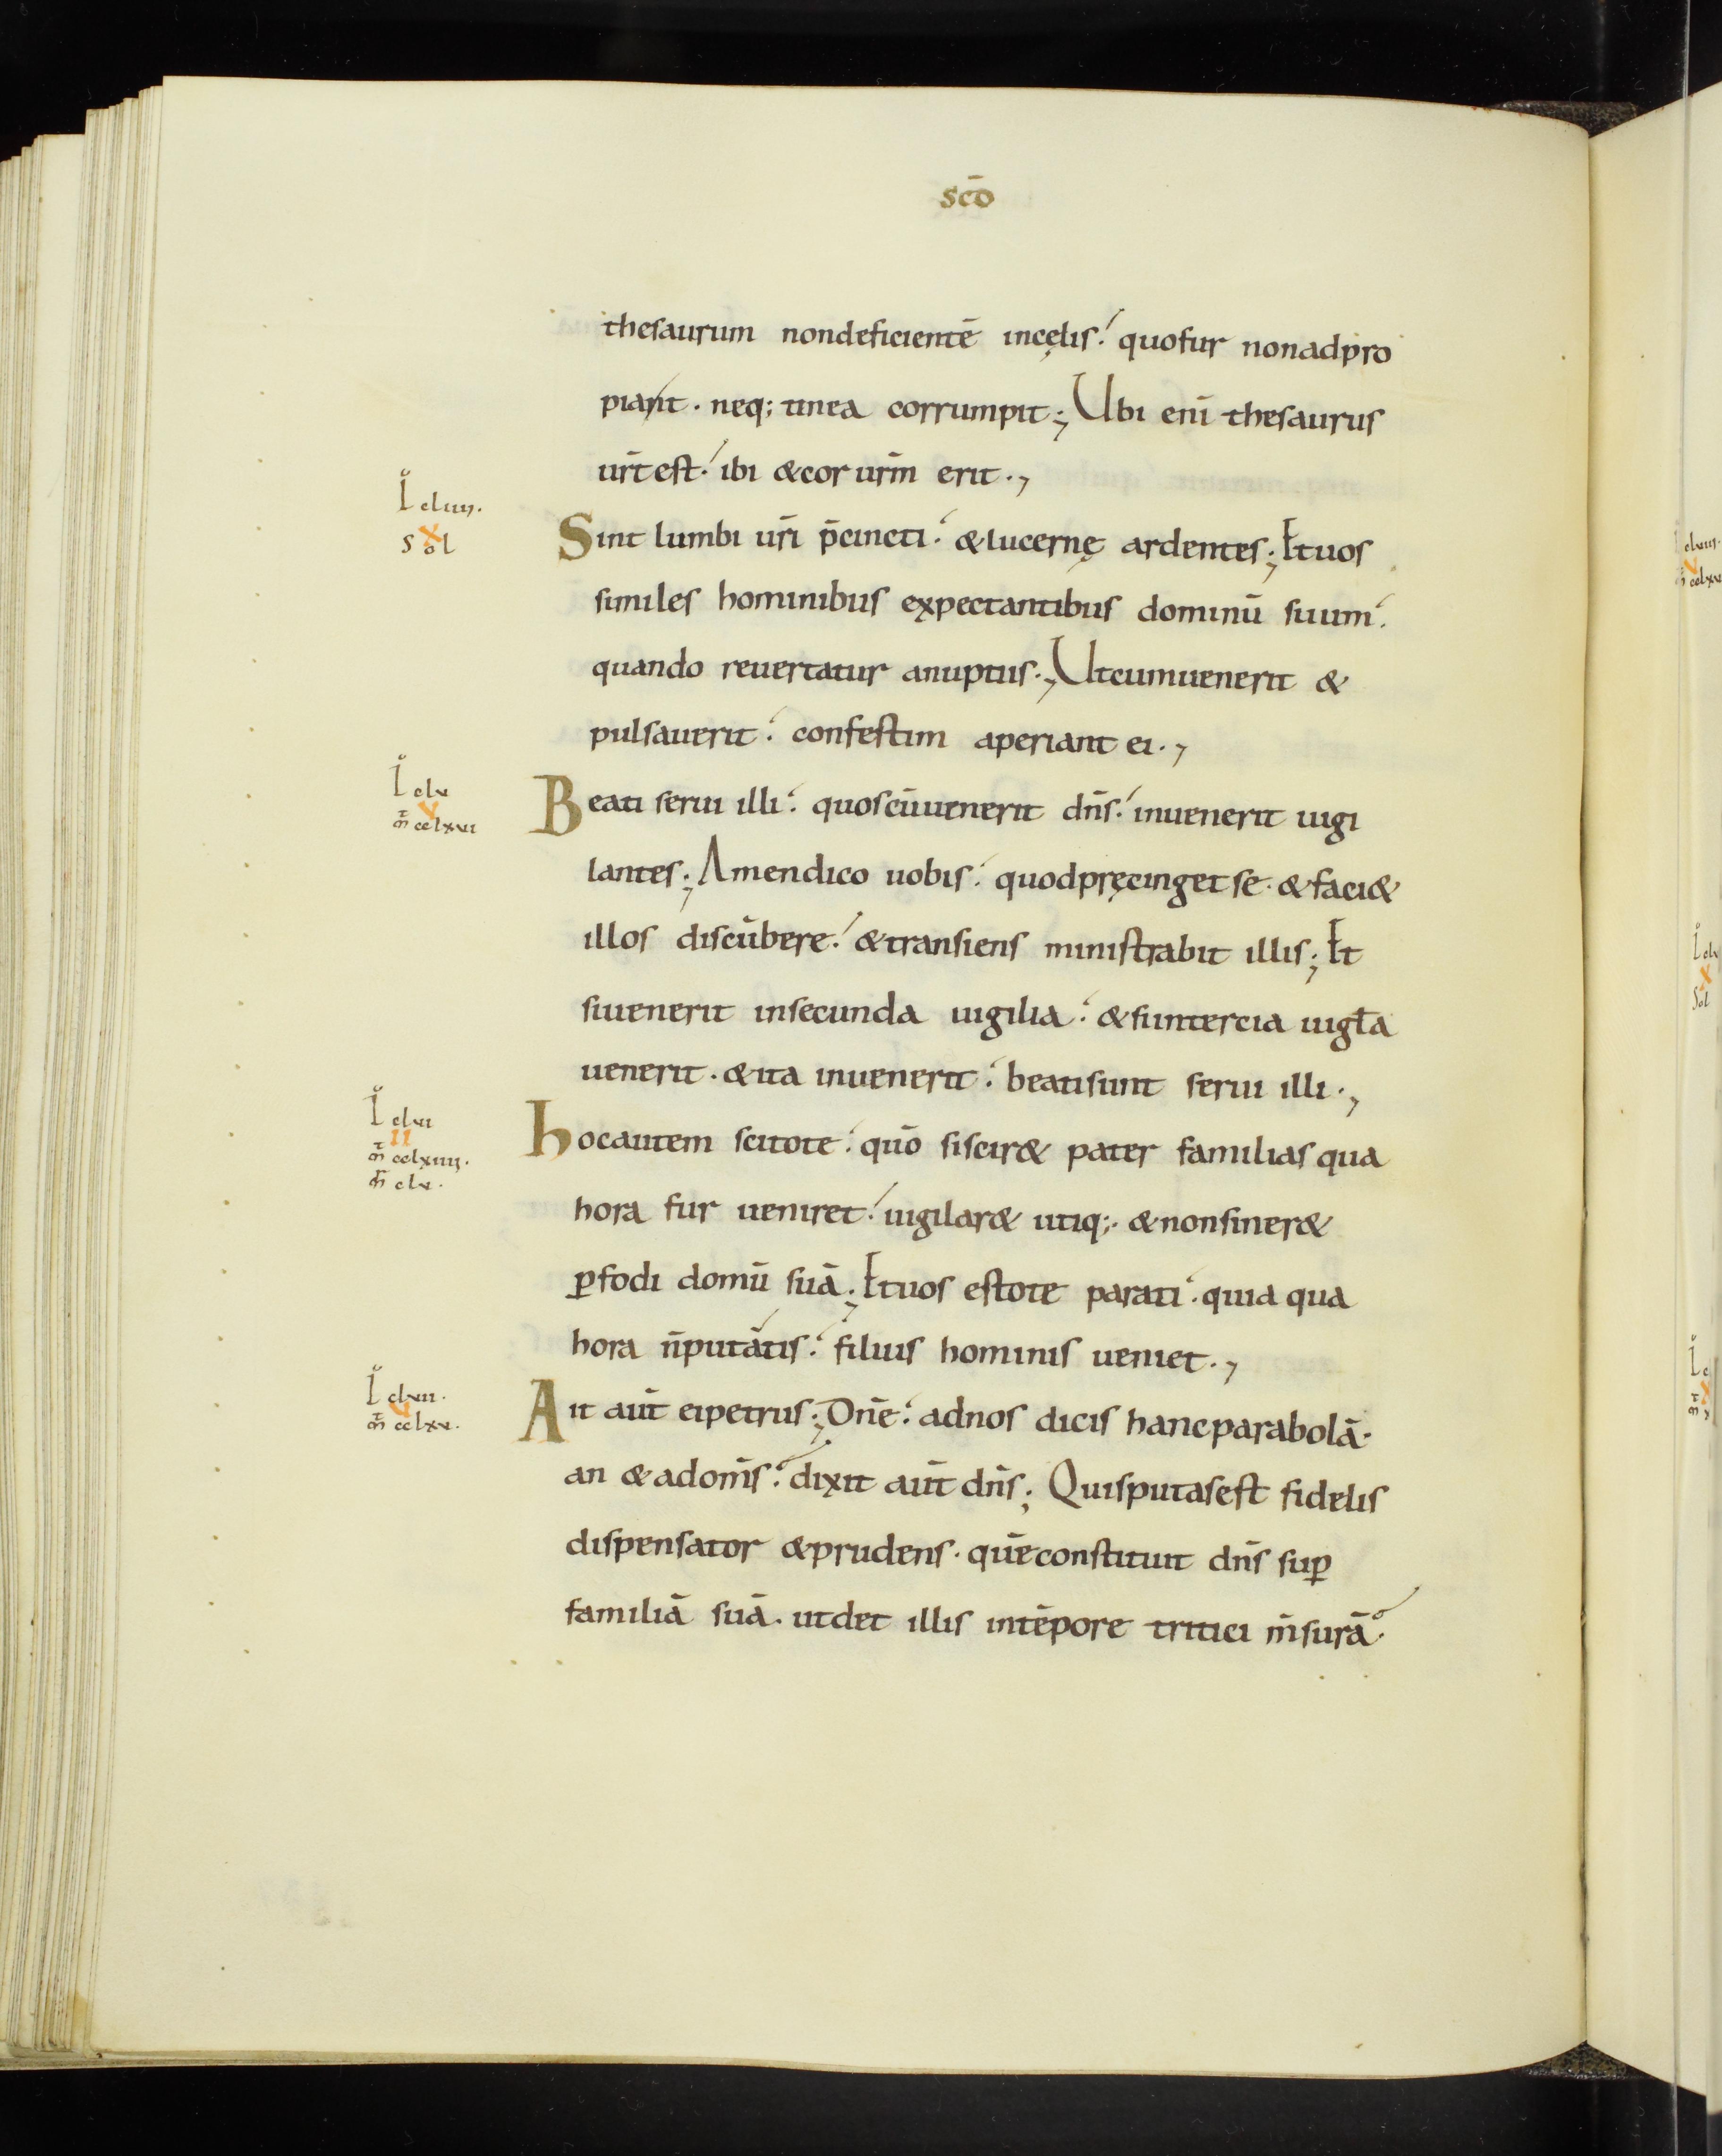 scō
thesaurum nondeficientē incęlis. quofur nonadpro
piant. neq; tinea corrumpit; Ubi enī thesaurus
ur̄ est. ibi & cor ur̄m erit.,
L cliiii.
X
sol
Sint lumbi ur̄i p̄cincti. & lucernę ardentes; Et uos
similes hominibus expectantibus dominū suum.
quando reuertatur anuptiis; Utcumuenerit &
pulsauerit. confestim aperiant ei.,
L clv
V
m̄ cclxvi
Beati serui illi. quoscūuenerit dn̄s. inuenerit uigi
lantes; Amendico uobis. quodpręcinget se. & faci&
illos discūbere. & transiens ministrabit illis; Et
siuenerit insecunda uigilia. & siintercia uigła
uenerit. & ita inuenerit. beatisunt serui illi.,
L clvi
II
m̄ cclxiiii.
m̄ clv.
hocautem scitote. quō siscir& pater familias qua
hora fur ueniret. uigilar& utiq;. & nonsiner&
ꝑfodi domū suā; Et uos estote parati. quia qua
hora n̄putātis. filius hominis ueniet.,
L clvii.
V
m̄ cclxv.
Ait aut̄ eipetrus; Dn̄e. adnos dicis hancparabolā.
an & adom̄s. dixit aut̄ dn̄s; Quisputasest fidelis
dispensator & prudens. quēconstituit dn̄s suꝑ
familiā suā. utdet illis intēpore tritici m̄surā.